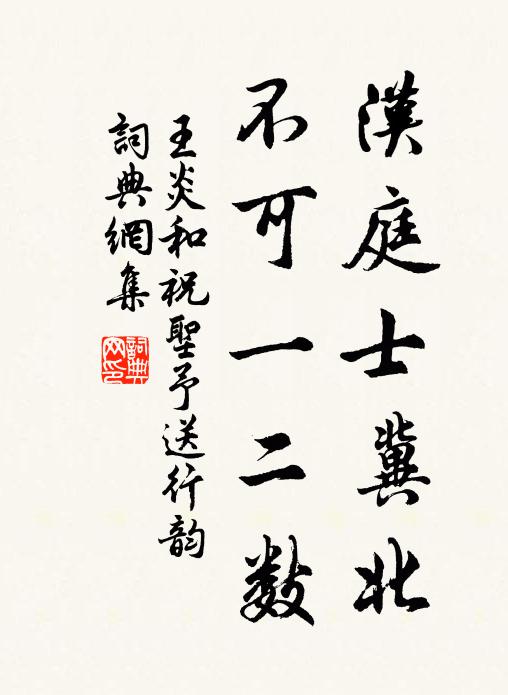 漢庭士冀北
不可一二数
王炎和祝聖予送行韵
詞典網集
詞典網印